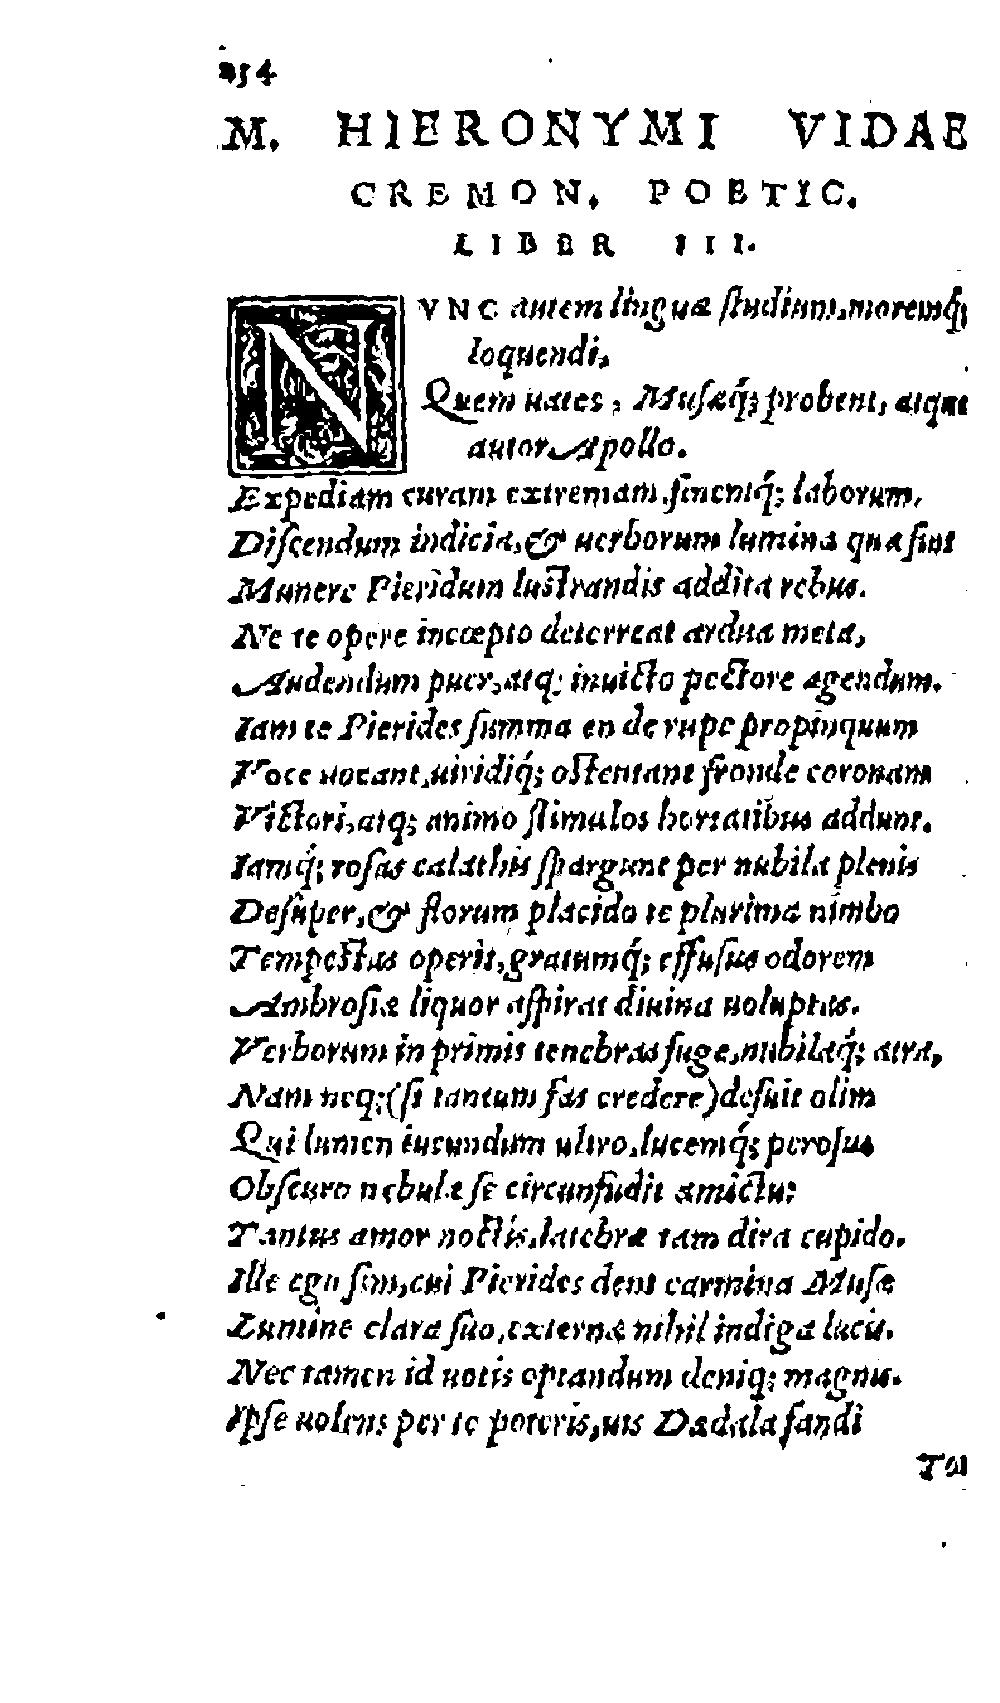 254
M. HIERONYMI VIDAE
CREMON. POETIC.
LIBER III.
NVNC autem linguæ ſtudium, moremq́;
loquendi,
Quem uates, Muſæq́; probent, atque
autor Apollo.
Expediam curam extremam, finemq́; laborum,
Diſcendum indicia, & uerborum lumina quæ ſint
Munere Pieridum luſtrandis addita rebus.
Ne te opere incœpto deterreat ardua meta,
Audendum puer, atq; inuicto pectore agendum.
Iam te Pierides ſumma en de rupe propinquum
Voce uocant, uiridiq́; oſtentant fronde coronam
Victori, atq; animo ſtimulos hortatibus addunt.
Iamq́; roſas calathis ſpargunt per nubila plenis
Deſuper, & florum placido te plurima nimbo
Tempeſtas operit, gratumq́; effuſus odorem
Ambroſiæ liquor aſpirat diuina uoluptas.
Verborum in primis tenebras fuge, nubilaq́; atra,
Nam neq; (ſi tantum fas credere) defuit olim
Qui lumen iucundum ultro, lucemq́; peroſus
Obſcuro nebulæ ſe circunfudit amictu:
Tantus amor noctis, latebræ tam dira cupido.
Ille ego ſim, cui Pierides dent carmina Muſæ
Lumine clara ſuo, externæ nihil indiga lucis.
Nec tamen id uotis optandum deniq; magnis.
Ipſe uolens per te poteris, uis Dædala fandi
Tot